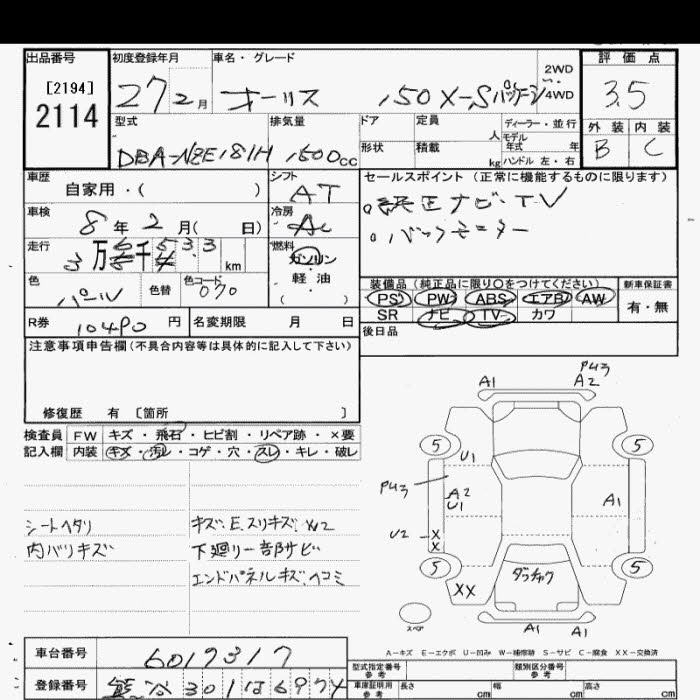 出品番号
[2194]
2114
初度登録年月
27 2月
車名・グレード
オーリス 150X-Sパッケージ
2WD
4WD
評価点
3.5
外装 内装
B C
型式
DBA-NZE181H
排気量
1500cc
ドア
形状
定員
人
積載
kg
ディーラー・並行
モデル
年式 年
ハンドル 左・右
車歴
自家用・( )
シフト
AT
車検
8年2月( 日)
冷房
AC
走行
3万
千
km
燃料
ガソリン
軽油
( )
色
パール
色替
色コード
070
R券
10490円
名変期限 月 日
セールスポイント(正常に機能するものに限ります)
。純正ナビ・TV
。バックモニター
装備品(純正品に限り〇をつけてください)
PS PW ABS エアB AW
SR ナビ TV カワ
新車保証書
有・無
後日品
注意事項申告欄(不具合内容等は具体的に記入して下さい)
修復歴 有 〔箇所 〕
検査員
記入欄
FW キズ・飛石・ヒビ割・リペア跡・×要
内装 キズ・汚レ・コゲ・穴・スレ・キレ・破レ
シートヘタリ
内バリキズ
キズ、E、スリキズ、XW2
下廻り一部サビ
エンドパネルキズ、ヘコミ
A1
A2
PU3
5
5
U1
PU3
A2
U1
A1
U2
X
X
5
5
XX
ダッチャク
スペア
A1
A1
A-キズ E-エクボ U-凹み W-補修跡 S-サビ C-腐食 XX-交換済
車台番号
6019317
登録番号
301 は
型式指定番号
参考
類別区分番号
参考
車庫証明用
参考
長さ cm
幅 cm
高さ cm